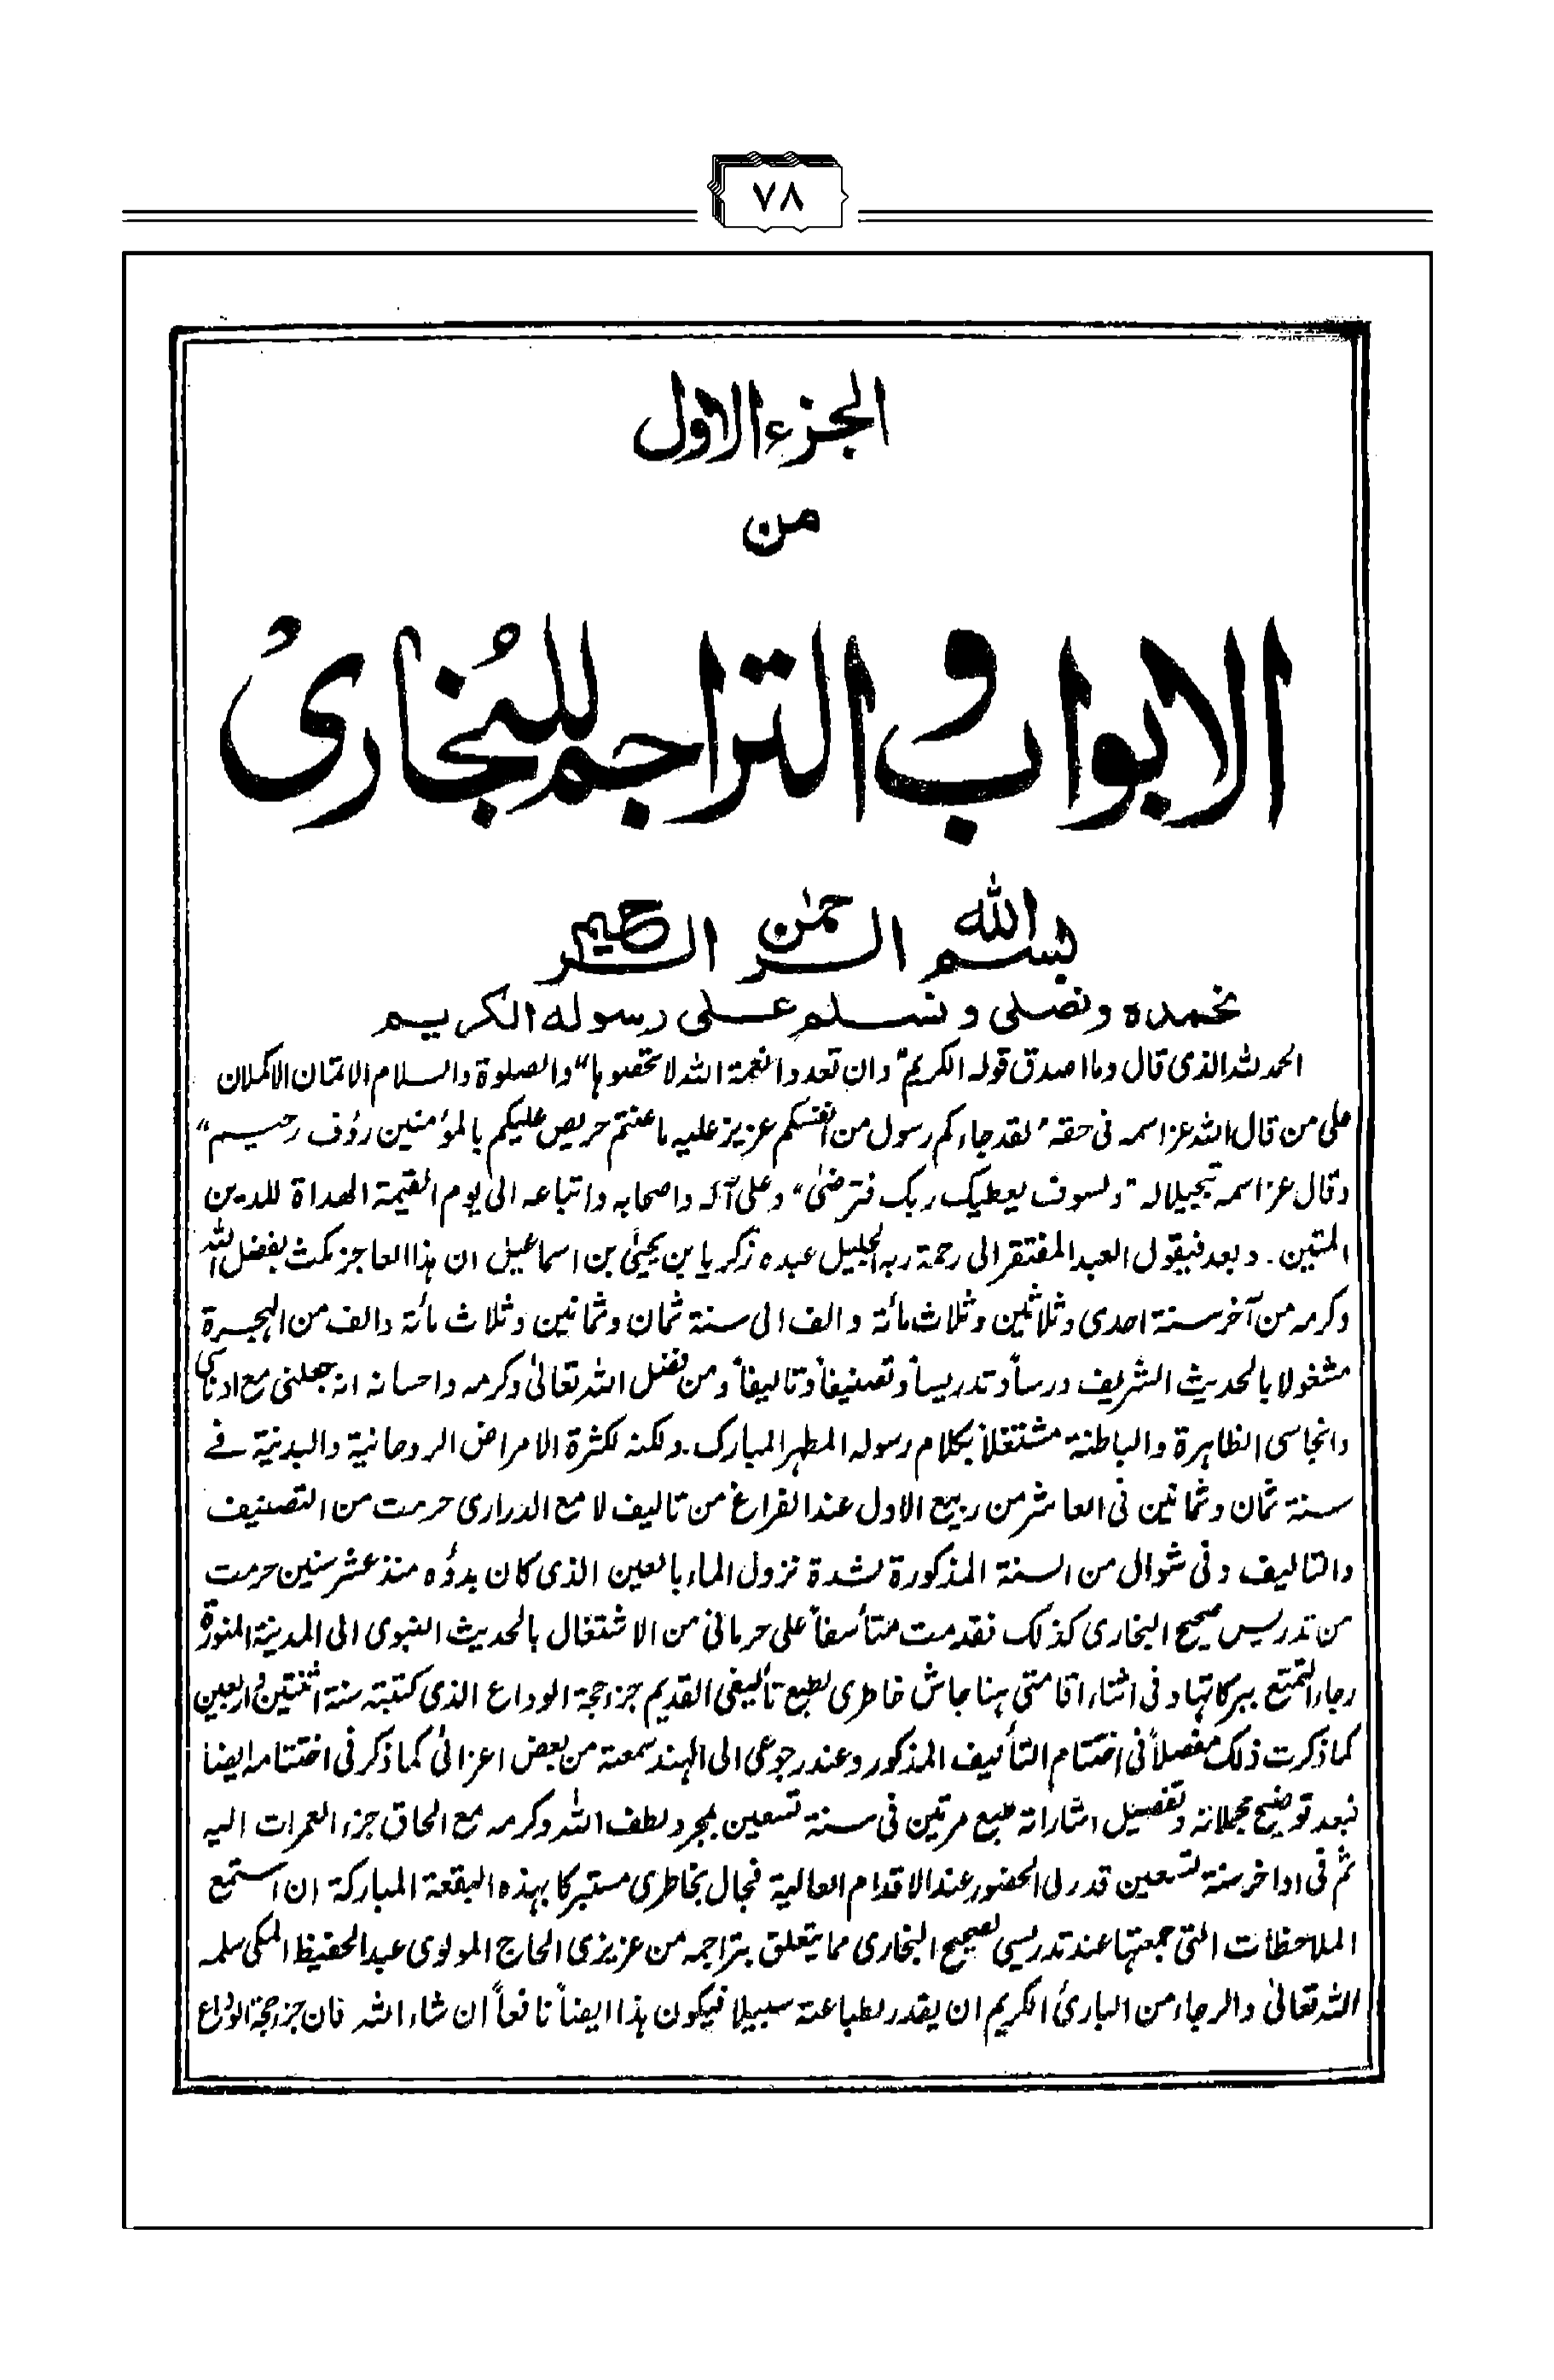 ٧٨
الجزء الاول
من
الابواب و التراجم للبُخاریؒ
بسم الله الرحمٰن الرحيم
نحمده ونصلی ونسلم علی رسوله الكريم
الحمد لله الذی قال وما اصدق قوله الكريم "وان تعدوا نعمة الله لا تحصوها" والصلوة والسلام الاتمان الاكملان
علی من قال الله عز اسمه فی حقه "لقد جاءكم رسول من انفسكم عزيز عليه ما عنتم حريص عليكم بالمؤمنين رؤف رحيم"
وقال عز اسمه تبجيلا له "ولسوف يعطيك ربك فترضیٰ" وعلی آله واصحابه واتباعه الی يوم القيمة الهداة للدين
المتين. وبعد فيقول العبد المفتقر الی رحمة ربه الجليل عبده زكريا بن يحيیٰ بن اسماعيل ان هذا العاجز مكث بفضل الله
وكرمه من آخر سنة احدی وثلاثين وثلاث مائة والف الی سنة ثمان وثمانين وثلاث مائة والف من الهجرة
مشغولا بالحديث الشريف درساً وتدريساً وتصنيفاً وتاليفاً ومن فضل الله تعالیٰ وكرمه واحسانه انه جعلنی مع ادناسی
وانجاسی الظاهرة والباطنة مشتغلاً بكلام رسوله المطهر المبارك. ولكنه لكثرة الامراض الروحانية والبدنية فی
سنة ثمان وثمانين فی العاشر من ربيع الاول عند الفراغ من تاليف لامع الدراری حرمت من التصنيف
والتاليف وفی شوال من السنة المذكورة لشدة نزول الماء بالعين الذی كان بدؤه منذ عشر سنين حرمت
من تدريس صحيح البخاری كذلك فقدمت متأسفاً علی حرمانی من الاشتغال بالحديث النبوی الی المدينة المنورة
رجاء التمتع ببركاتها وفی اثناء اقامتی هنا جاش خاطری لطبع تأليفی القديم جزء حجة الوداع الذی كتبته سنة اثنتين واربعين
كما ذكرت ذلك مفصلاً فی اختتام التأليف المذكور وعند رجوعی الی الهند سمعته من بعض اعزائی كما ذكر فی اختتامه ايضا
فبعد توضيح مجملاته وتفصيل اشاراته طبع مرتين فی سنة تسعين بمجرد لطف الله وكرمه مع الحاق جزء العمرات اليه
ثم فی اواخر سنة تسعين قدر لی الحضور عند الاقدام العالية فجال بخاطری مستبركا بهذه البقعة المباركة ان استمع
الملاحظات التی جمعتها عند تدريسی لصحيح البخاری مما يتعلق بتراجمه من عزيزی الحاج المولوی عبد الحفيظ المكی سلمه
الله تعالیٰ والرجاء من الباری الكريم ان يقدر لطباعته سبيلا فيكون هذا ايضاً نافعاً ان شاء الله فان جزء حجة الوداع